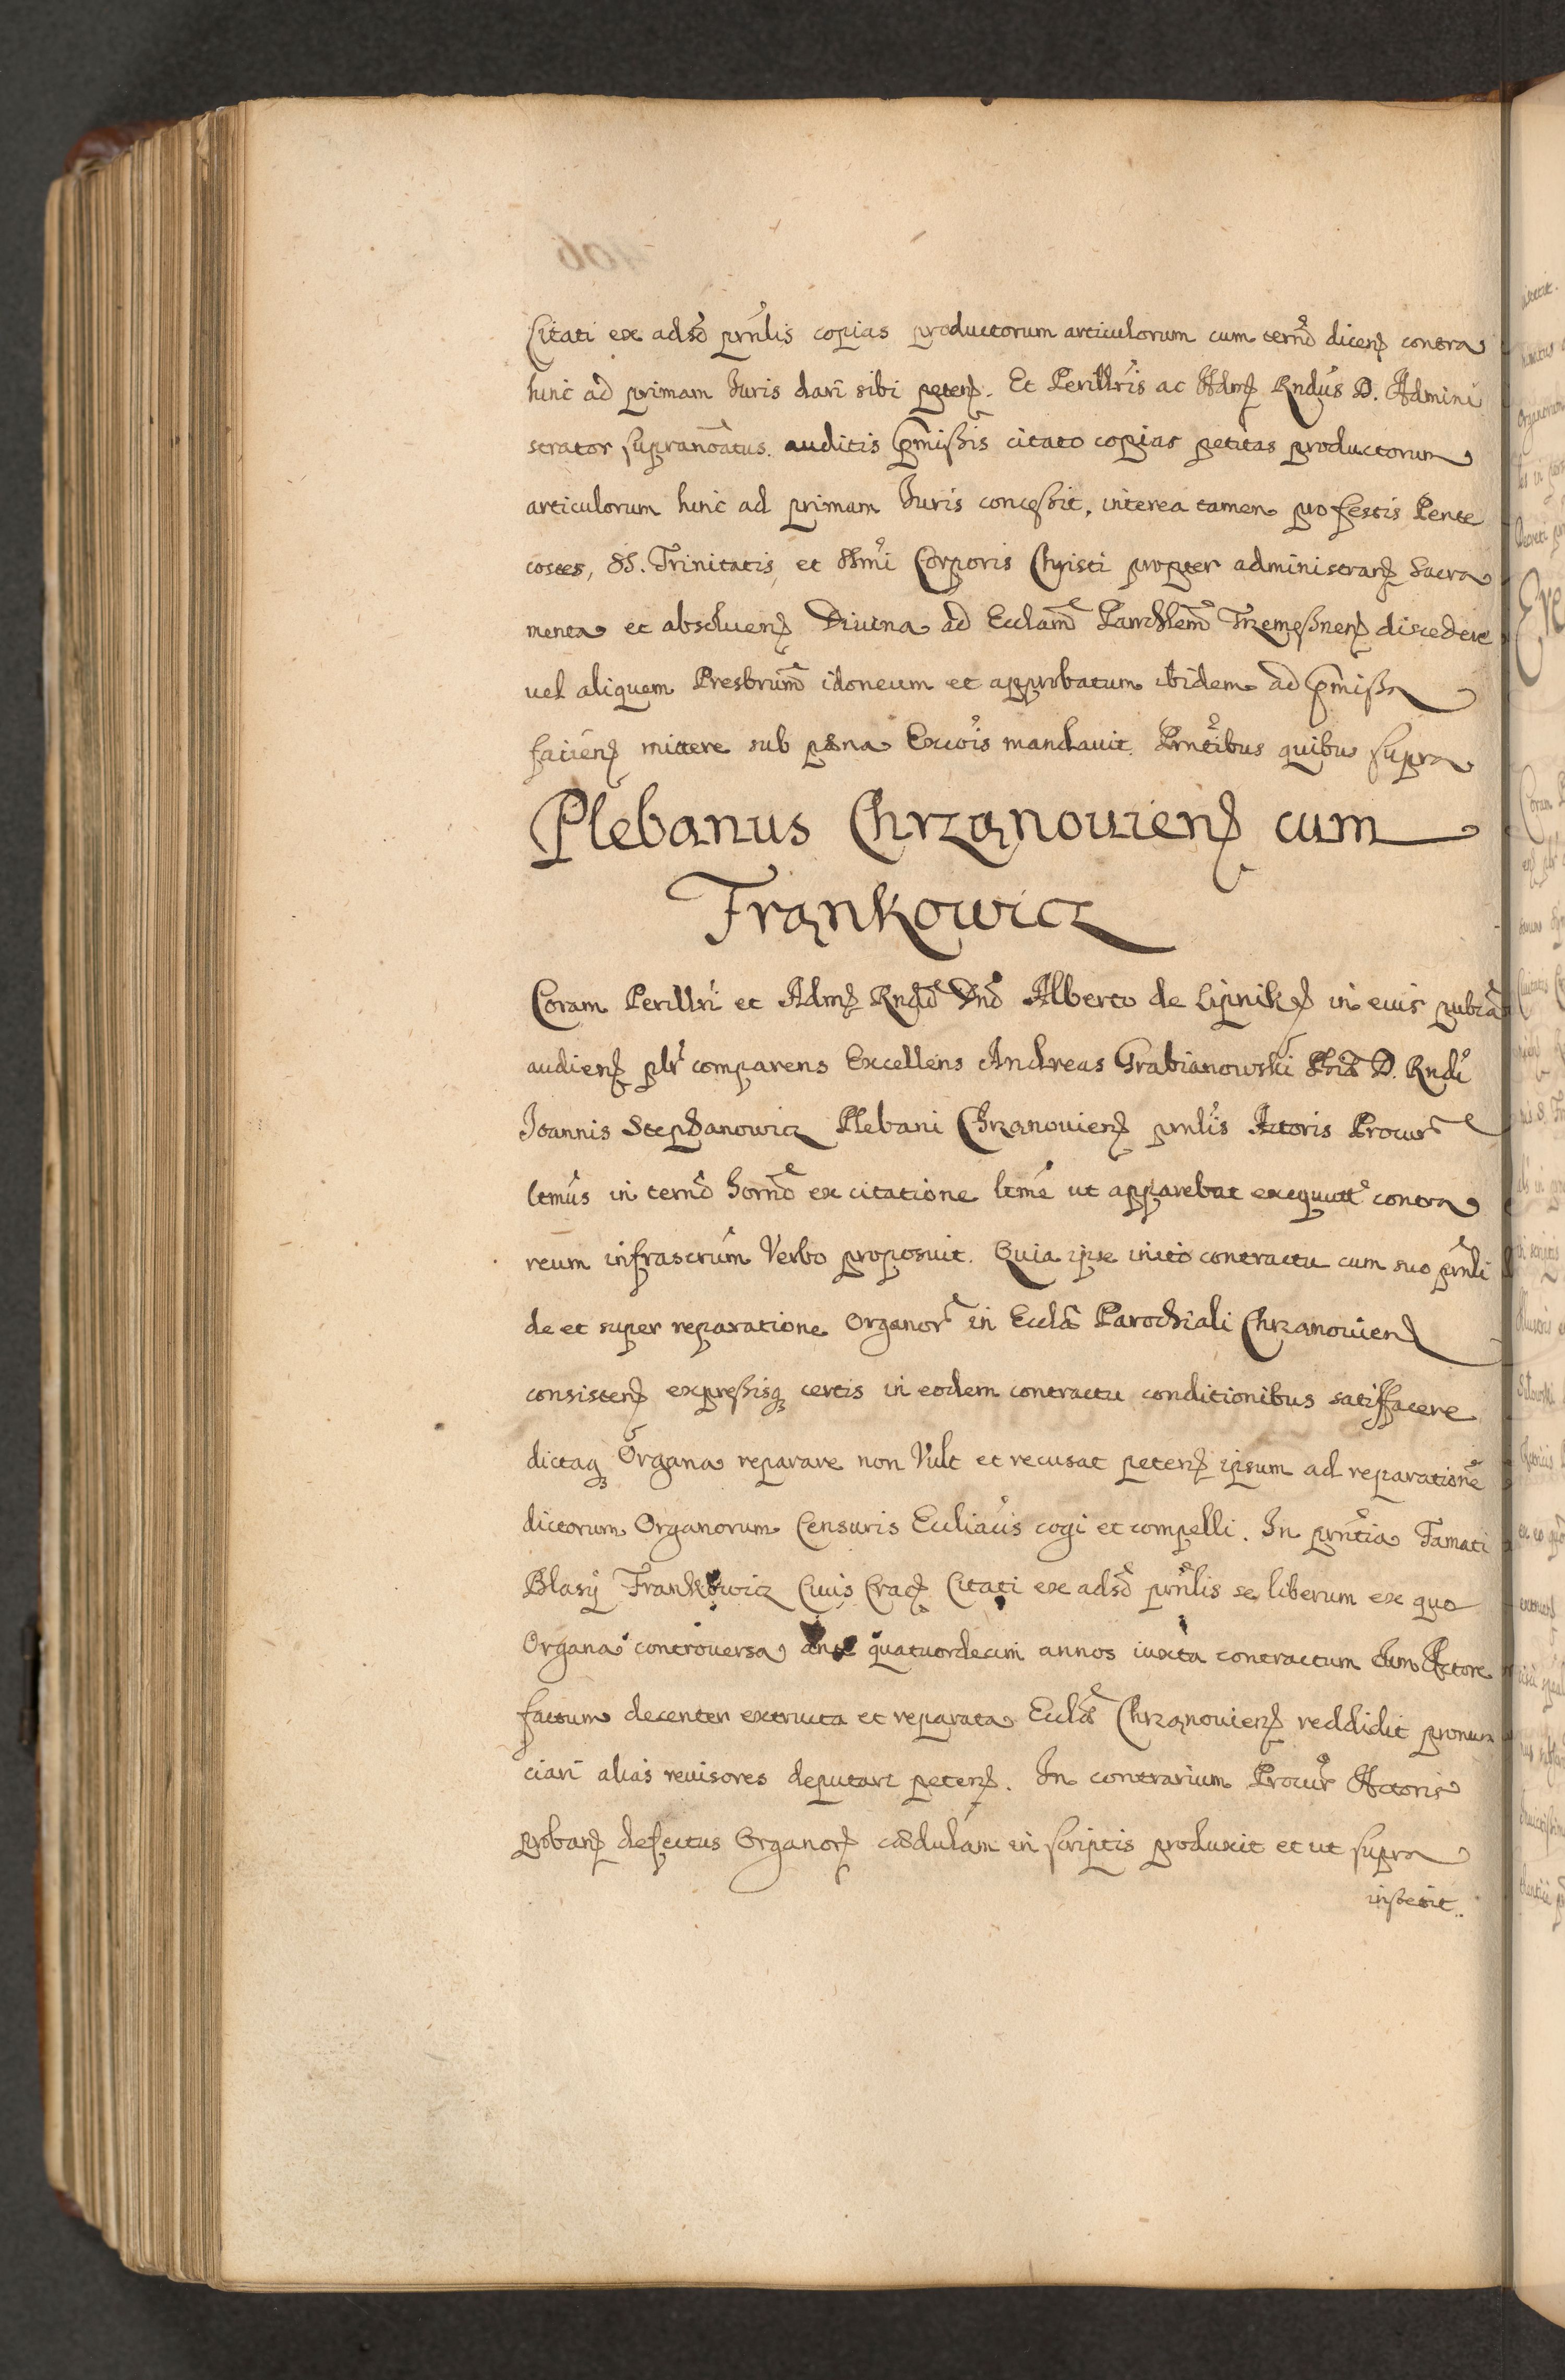 Citati ex adső prñlis copias productorum articulorum cum termő dicenꝭ contra
hinc ad primam Juris dari sibi petenꝭ. Et Perillris ac Admꝭ Rndus D. Admini
strator supranoatus. auditis pmissis citato copias petitas productorum
articulorum hinc ad primam Juris concessit, interea tamen pro festis Pente
costes, SS. Trinitatis, et SSmi Corporis Christi propter administranꝭ Sacra
menta et absoluenꝭ Diuina ad Ecclam Parochlem Trzemesnenꝭ discedere
uel aliquem Presbrum idoneum et approbatum ibidem ad pmissa
facienꝭ mittere sub pæna Excois mandauit. Prntibus quibus supra
Plebanus Chrzanouienꝭ cum
Frankowicz
Coram Perillri et Admꝭ Rndo Dno Alberto de Lipnikꝭ in eius publca
audienꝭ plr comparens Excellens Andreas Grabianowski Phiæ D. Rndi
Joannis Stephanowicz Plebani Chrzanouienꝭ prnlis Actoris Procur
ltmus in termo horno ex citatione ltme ut apparebat exequutt contra
reum infrascrum Verbo proposuit. Quia ipse inito contractu cum suo prnli
de et super reparatione Organor in Eccla Parochiali Chrzanouienꝭ
consistenꝭ expressisqꝫ certis in eodem contractu conditionibus satisfacere
dictaqꝫ Organa reparare non Vult et recusat petenꝭ ipsum ad reparatione
dictorum Organorum Censuris Eccliacis cogi et compelli. In prntia Famati
Blasij Frankowicz Ciuis Cracꝭ Citati ex adso prnlis se liberum ex quo
Organa controuersa ante quatuordecim annos iuxta contractum cum Actore
factum decenter extructa et reparata Eccla Chrzanouienꝭ reddidit pronun
ciari alias reuisores deputari petenꝭ. In contrarium Procur Actoris
probanꝭ defectus Organorꝭ cædulam in scriptis produxit et ut supra
institit.